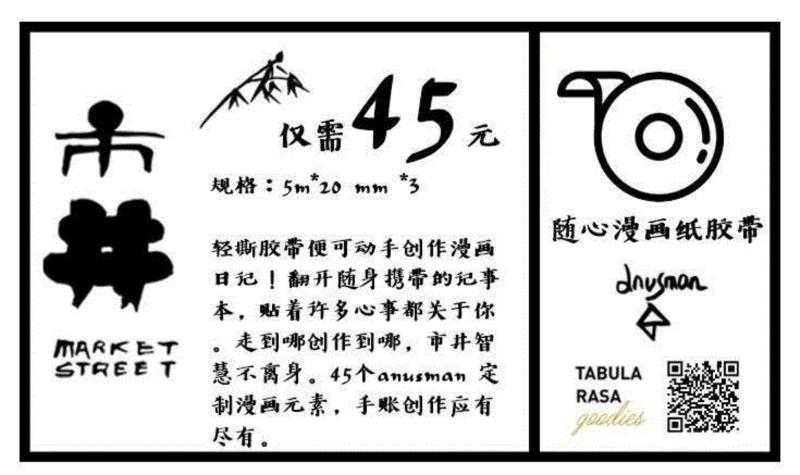 市
井
MARKET
STREET
仅需45元
规格：5m*20 mm *3
轻撕胶带便可动手创作漫画
日记！翻开随身携带的记事
本，贴着许多心事都关于你
。走到哪创作到哪，市井智
慧不离身。45个anusman 定
制漫画元素，手账创作应有
尽有。
随心漫画纸胶带
anusman
TABULA
RASA
goodies